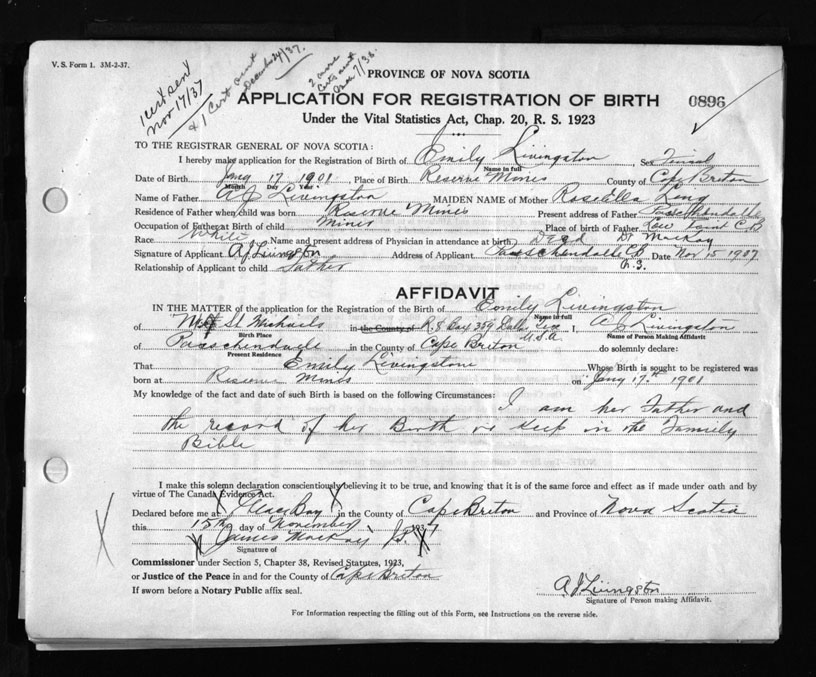 V. S. Form 1. 3M-2-37.
1 cert sent
Nov 17/37
& 1 Cert sent
December 24/37.
2 more
Certs sent
7/38
PROVINCE OF NOVA SCOTIA
APPLICATION FOR REGISTRATION OF BIRTH 0896
Under the Vital Statistics Act, Chap. 20, R. S. 1923
TO THE REGISTRAR GENERAL OF NOVA SCOTIA:
I hereby make application for the Registration of Birth of Emily Livingston, Sex
Name in full
Date of Birth Jany 17 1901, Place of Birth Reserve Mines County of Cape Breton
Month Day Year
Name of Father A J Livingston MAIDEN NAME of Mother Rosiella
Residence of Father when child was born Reserve Mines Present address of Father
Occupation of Father at Birth of child Miner Place of birth of Father C B
Race White Name and present address of Physician in attendance at birth Dead Dr MacKay
Signature of Applicant A J Livingston Address of Applicant C B Date Nov 15 1937
N.S.
Relationship of Applicant to child Father
AFFIDAVIT
IN THE MATTER of the application for the Registration of the Birth of Emily Livingston
Name in full
of St Michaels in the County of R.8 Box 389 U.S.A I, A J Livingston
Birth Place Name of Person Making Affidavit
of in the County of Cape Briton do solemnly declare:
Present Residence
That Emily Livingstone Whose Birth is sought to be registered was
born at Reserve Mines on Jany 17th 1901
My knowledge of the fact and date of such Birth is based on the following Circumstances:
I am her Father and
the record of her Birth is keep in the Family
Bible
I make this solemn declaration conscientiously believing it to be true, and knowing that it is of the same force and effect as if made under oath and by
virtue of The Canada Evidence Act.
Declared before me at X Glace Bay X in the County of Cape Breton and Province of Nova Scotia
this 15th day of November 1937
X James MacKay J.P. X
Signature of
Commissioner under Section 5, Chapter 38, Revised Statutes, 1923,
or Justice of the Peace in and for the County of Cape Breton
If sworn before a Notary Public affix seal.
A J Livingston
Signature of Person making Affidavit.
For Information respecting the filling out of this Form, see Instructions on the reverse side.